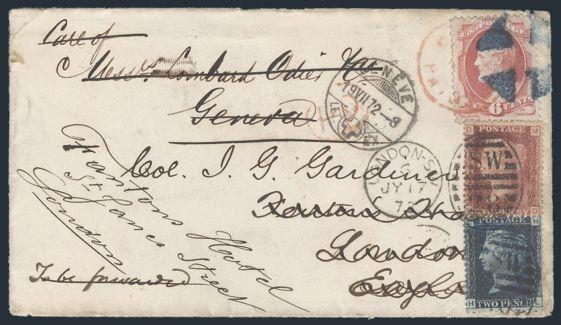 Care of
Messrs Lombard Odier
Geneva
Col. I. G. Gardiner
London
Fentons Hotel
St James Street
London
To be forwarded
GENEVE
19 VII 72 - 8
LONDON-S.W
JY 17
72
SW
8
6 CENTS
POSTAGE
POSTAGE
TWO PENCE